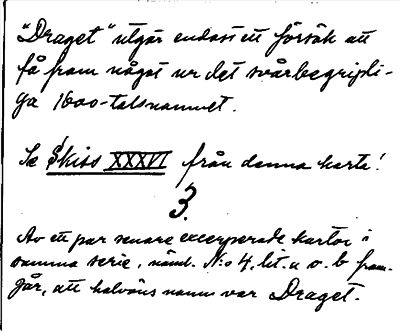 "Draget" utgår endast ett försök att
få fram något ur det svårbegripli-
ga 1600-talsnamnet.
Se Skiss XXXVI från denna karta!
3.
Av ett par senare excerperade kartor i
samma serie, näml. N:o 4, lit. a o. b fram-
går, att halvöns namn var Draget.